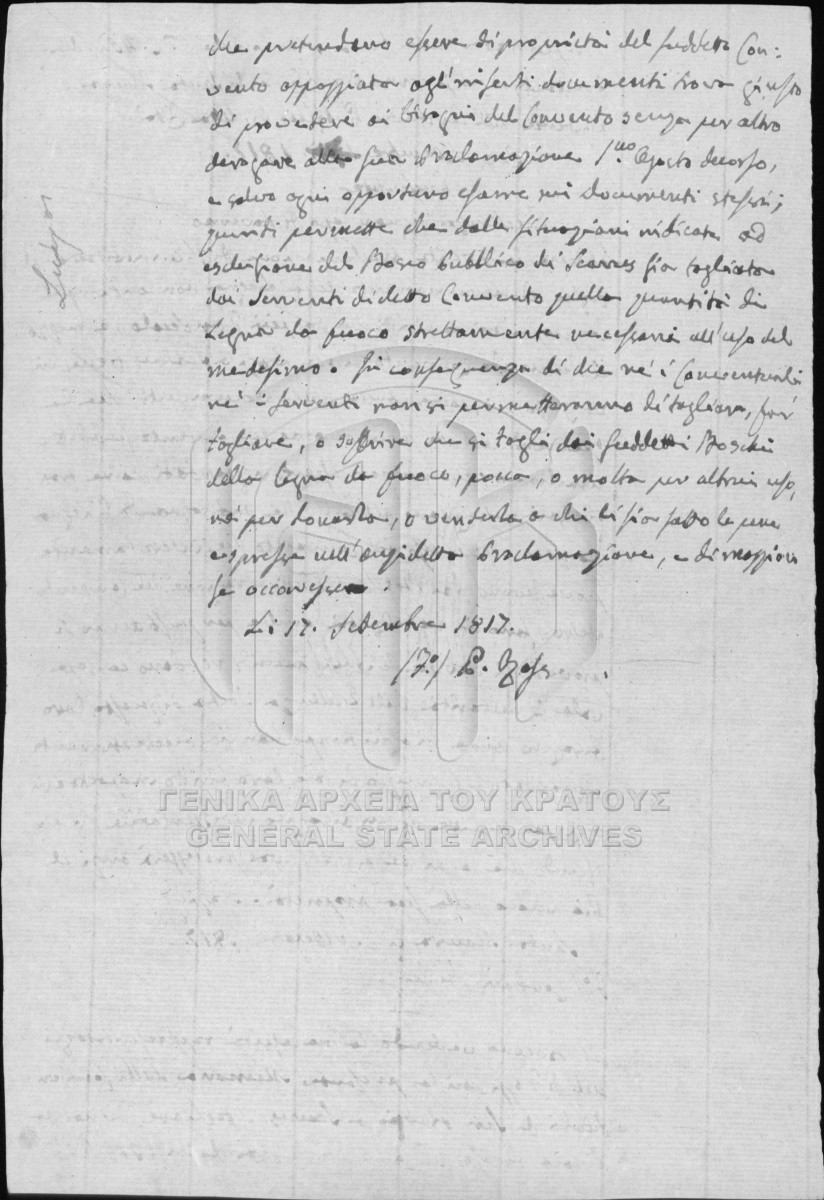 che pretendono essere di proprietà del suddetto Con:
vento appoggiata agl'inserti documenti trova giusto
di provedere ai bisogni del Convento senza per altro
derogare alla sua Proclamazione 1.mo Agosto decorso,
e salvo ogni opportuno esame sui documenti stessi;
quindi permette che dalle situazioni indicate ad
esclusione del Bosco Pubblico di sia tagliata
dai Serventi di detto Convento quella quantità di
Legna da fuoco strettamente necessaria all'uso del
medesimo. In conseguenza di che nè i Conventuali
nè i serventi non si permetteranno di tagliare, far
tagliare, o soffrire che si tagli dai suddetti Boschi
della legna da fuoco, poca, o molta per altrui uso,
nè per donarla, o venderla o chi li sia sotto le pene
espresse nell'anzidetta Proclamazione, e di maggiori
se occoresse.
Li 17. Settembre 1817.
/F.o/ P. Ross
ΓΕΝΙΚΑ ΑΡΧΕΙΑ ΤΟΥ ΚΡΑΤΟΥΣ
GENERAL STATE ARCHIVES